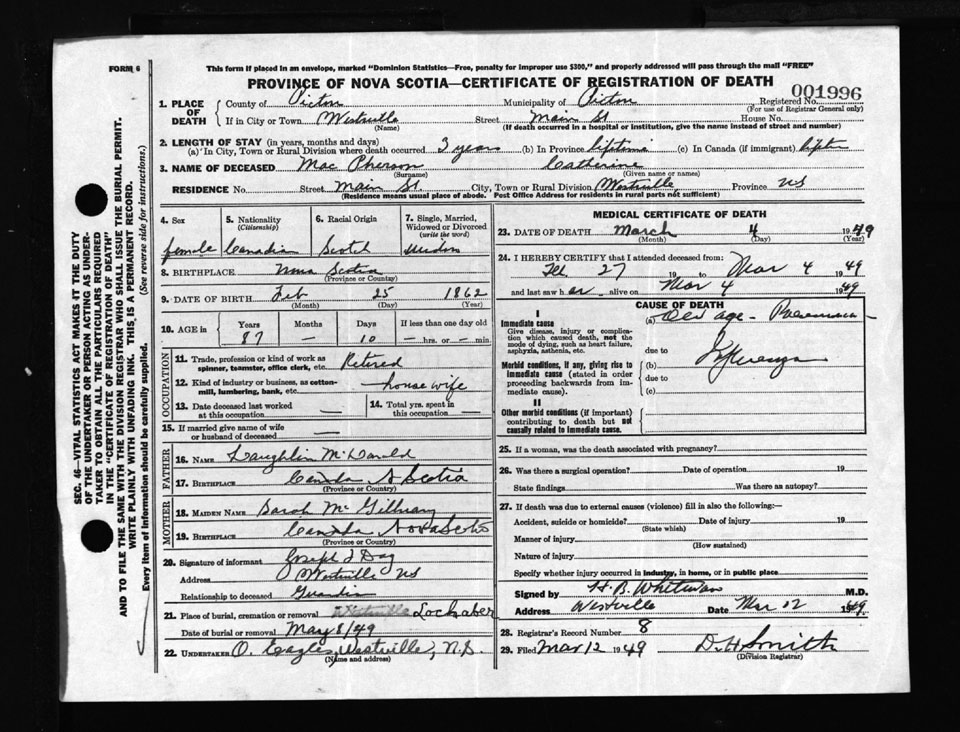 FORM 6
This form if placed in an envelope, marked "Dominion Statistics—Free, penalty for improper use $300," and properly addressed will pass through the mail "FREE"
PROVINCE OF NOVA SCOTIA—CERTIFICATE OF REGISTRATION OF DEATH
001996
1. PLACE OF DEATH { County of Pictou Municipality of Pictou Registered No.
(For use of Registrar General only)
If in City or Town Westville Street Main St House No.
(Name) (If death occurred in a hospital or institution, give the name instead of street and number)
2. LENGTH OF STAY (in years, months and days)
(a) In City, Town or Rural Division where death occurred 3 years (b) In Province lifetime (c) In Canada (if immigrant)
3. NAME OF DECEASED Mac Pherson Catherine
(Surname) (Given name or names)
RESIDENCE No. Street Main St. City, Town or Rural Division Westville Province NS
(Residence means usual place of abode. Post Office Address for residents in rural parts not sufficient)
4. Sex female
5. Nationality (Citizenship) Canadian
6. Racial Origin Scotch
7. Single, Married, Widowed or Divorced (write the word) widow
8. BIRTHPLACE Nova Scotia
(Province or Country)
9. DATE OF BIRTH Feb 25 1862
(Month) (Day) (Year)
10. AGE in { Years Months Days If less than one day old
87 — 10 — hrs. or — min.
OCCUPATION
11. Trade, profession or kind of work as spinner, teamster, office clerk, etc. Retired
12. Kind of industry or business, as cotton-mill, lumbering, bank, etc. housewife
13. Date deceased last worked at this occupation —
14. Total yrs. spent in this occupation —
15. If married give name of wife or husband of deceased —
FATHER
16. NAME Laughlin McDonald
17. BIRTHPLACE Canada N Scotia
(Province or Country)
MOTHER
18. MAIDEN NAME Sarah Mc
19. BIRTHPLACE Canada Nova Scotia
(Province or Country)
20. Signature of informant Joseph J Day
Address Westville NS
Relationship to deceased Guardian
21. Place of burial, cremation or removal Westville Lochaber
Date of burial or removal May 8/49
22. UNDERTAKER O. Eagles, Westville, N.S.
(Name and address)
MEDICAL CERTIFICATE OF DEATH
23. DATE OF DEATH March 4 1949
(Month) (Day) (Year)
24. I HEREBY CERTIFY that I attended deceased from:
Feb 27 19 to Mar 4 1949
and last saw h er alive on Mar 4 1949
CAUSE OF DEATH
I
Immediate cause
Give disease, injury or complication which caused death, not the mode of dying, such as heart failure, asphyxia, asthenia, etc.
(a) Old age - Pneumonia -
due to
Morbid conditions, if any, giving rise to immediate cause (stated in order proceeding backwards from immediate cause).
(b)
due to
(c)
II
Other morbid conditions (if important) contributing to death but not causally related to immediate cause.
25. If a woman, was the death associated with pregnancy?
26. Was there a surgical operation? Date of operation 19
State findings Was there an autopsy?
27. If death was due to external causes (violence) fill in also the following:—
Accident, suicide or homicide? Date of injury 19
(State which)
Manner of injury
(How sustained)
Nature of injury
Specify whether injury occurred in industry, in home, or in public place
Signed by H. B. Whitman M.D.
Address Westville Date Mar 12 1949.
28. Registrar's Record Number 8
29. Filed Mar 12 1949 D. H Smith
(Division Registrar)
SEC. 46—VITAL STATISTICS ACT MAKES IT THE DUTY
OF THE UNDERTAKER OR PERSON ACTING AS UNDER-
TAKER TO OBTAIN ALL THE PARTICULARS REQUIRED
IN THE "CERTIFICATE OF REGISTRATION OF DEATH"
AND TO FILE THE SAME WITH THE DIVISION REGISTRAR WHO SHALL ISSUE THE BURIAL PERMIT.
WRITE PLAINLY WITH UNFADING INK. THIS IS A PERMANENT RECORD.
Every item of information should be carefully supplied. (See reverse side for instructions.)